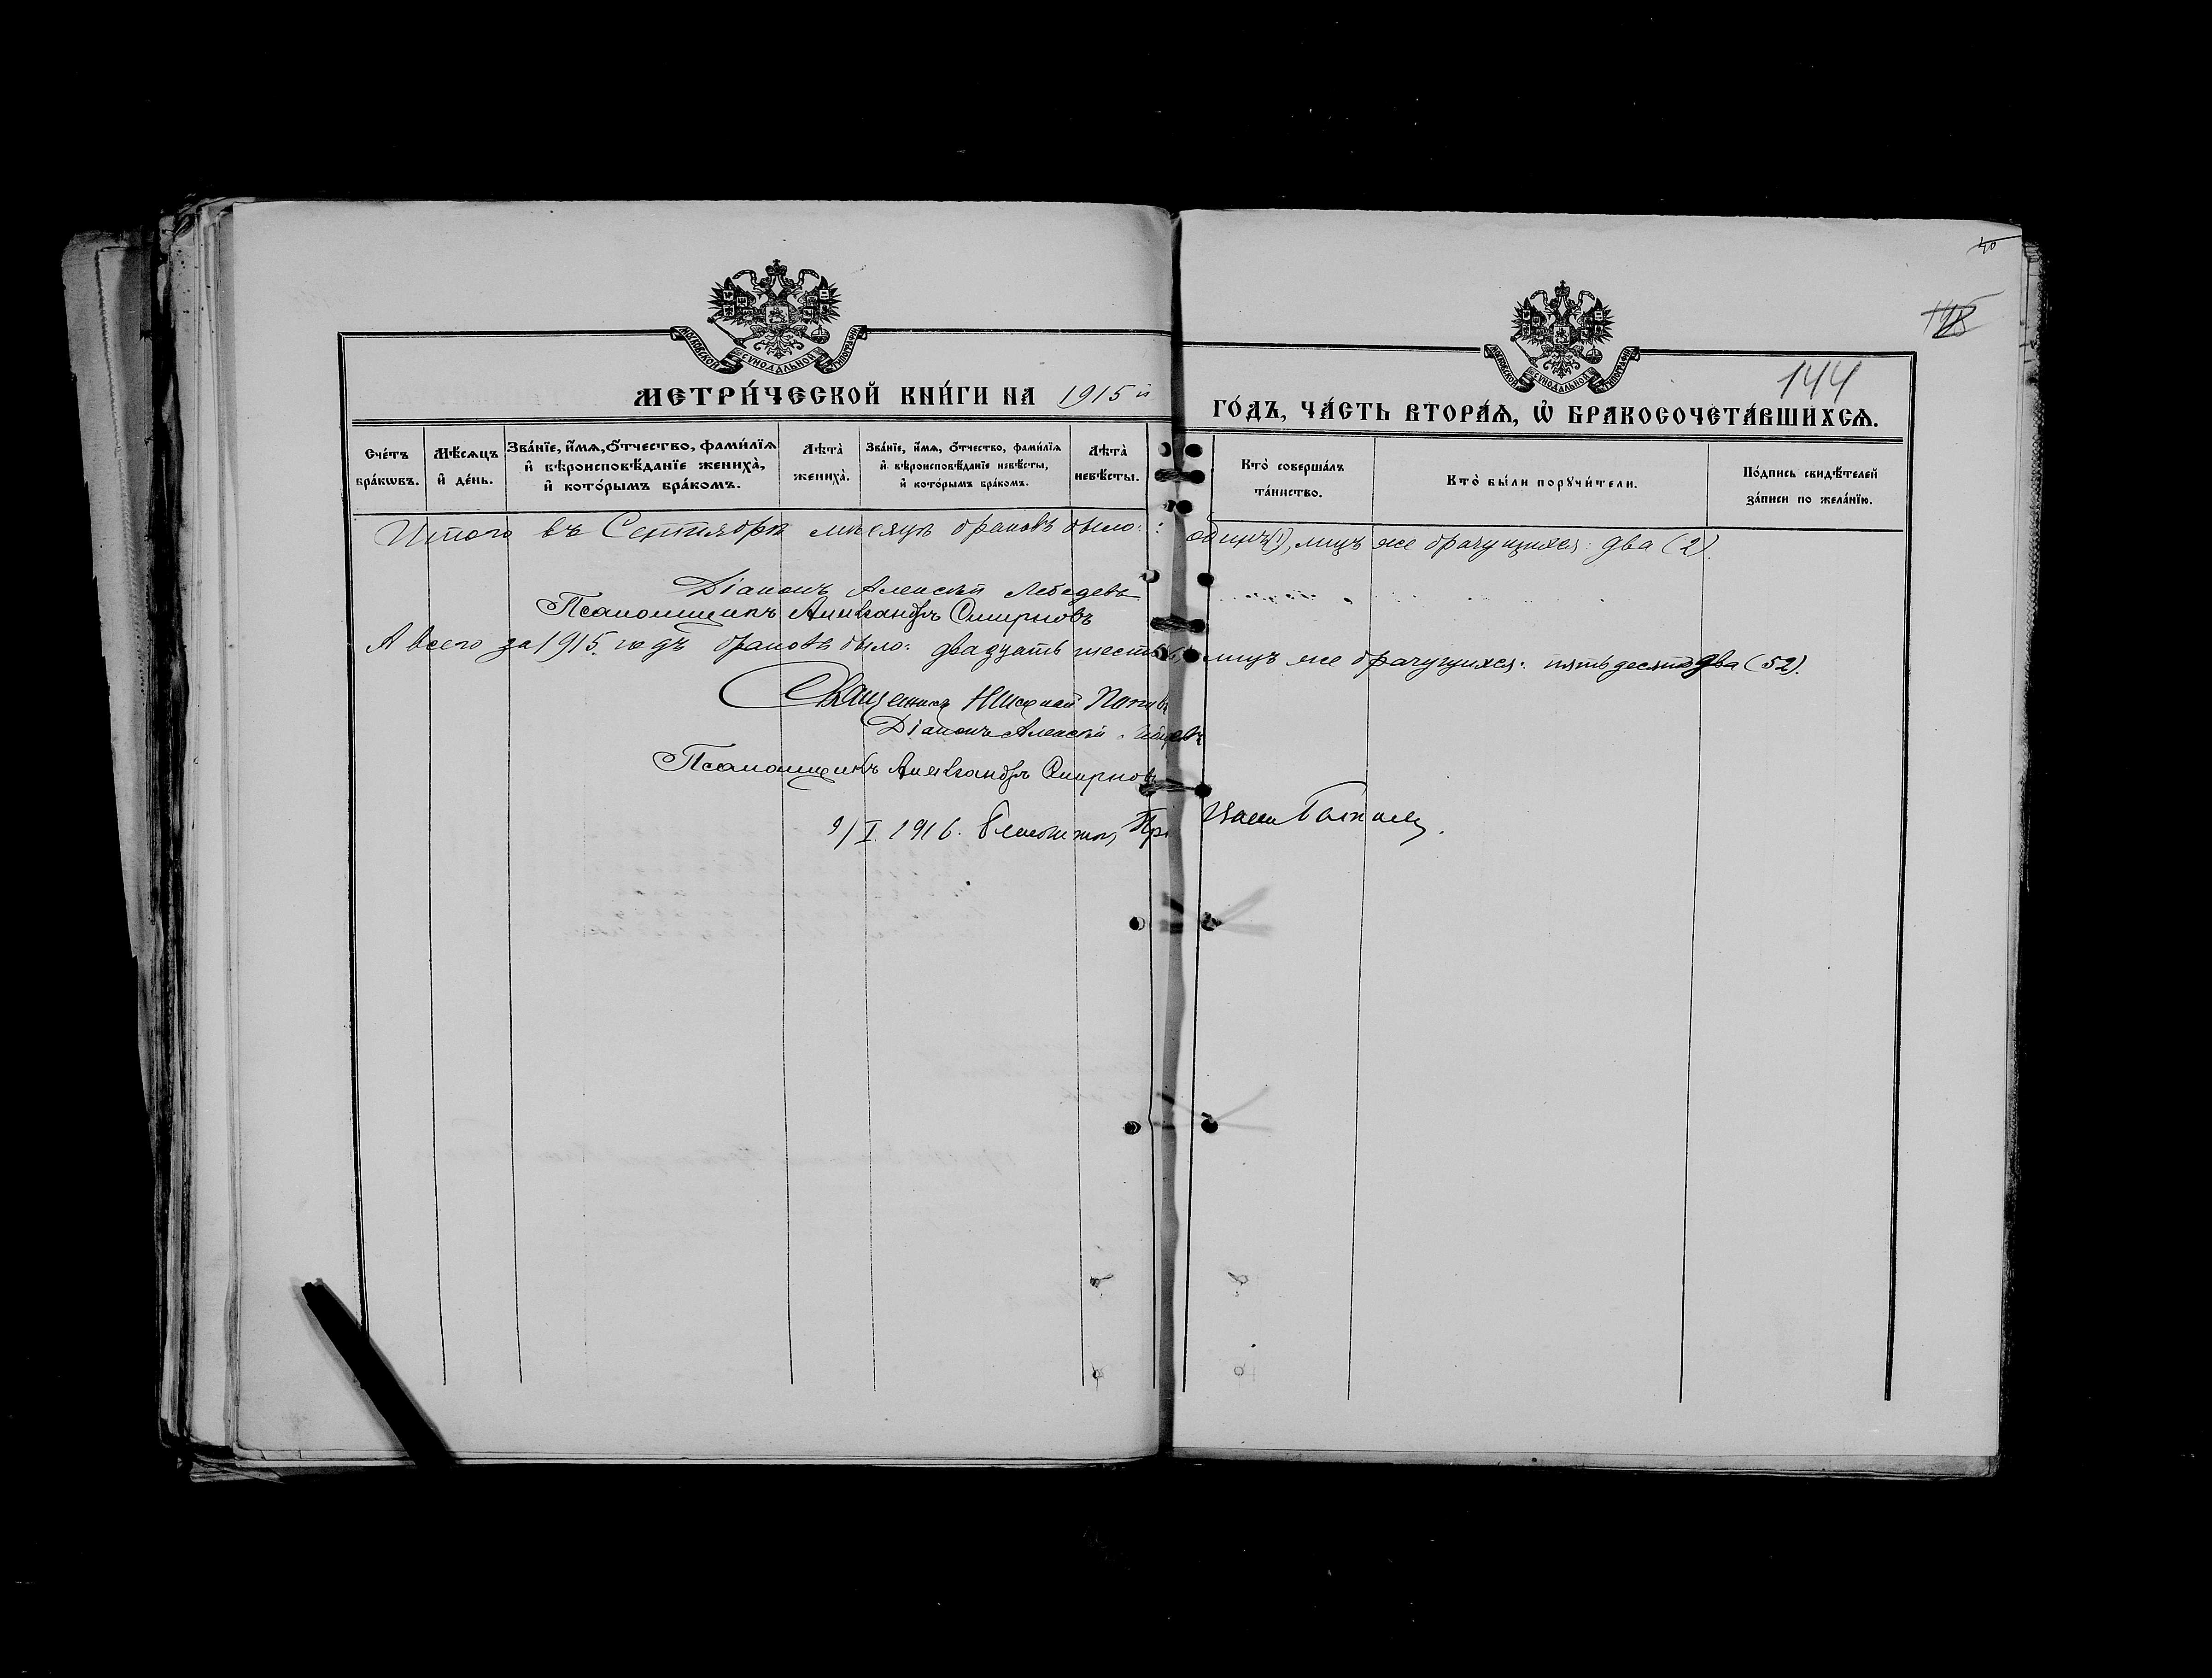 40
144
МОСКОВСКОЙ СѴНОДАЛЬНОЙ ТИПОГРАФІИ
МОСКОВСКОЙ СѴНОДАЛЬНОЙ ТИПОГРАФІИ
МЕТРИ́ЧЕСКОЙ КНИ́ГИ НА 1915 й ГО́ДЪ, ЧА́СТЬ ВТОРА́Ѧ, Ѡ҆ БРАКОСОЧЕТА́ВШИХСѦ.
Сче́тъ бра́кѡвъ.
Мѣ́сѧцъ и҆ де́нь.
Зва́нїе, и҆́мѧ, о҆́тчество, фами́лїѧ и҆ вѣроисповѣ́данїе жениха̀, и҆ кото́рымъ бра́комъ.
Лѣта̀ жениха̀.
Зва́нїе, и҆́мѧ, о҆́тчество, фами́лїѧ и҆ вѣроисповѣ́данїе невѣ́сты, и҆ кото́рымъ бра́комъ.
Лѣта̀ невѣ́сты.
Кто̀ соверша́лъ та́инство.
Кто̀ бы́ли порꙋчи́тели.
По́дпись свидѣ́телей за́писи по жела́нїю.
Итого въ Сентябрѣ мѣсяцѣ браковъ было: одинъ (1), лицъ же брачущихся: два (2).
Діаконъ Алексѣй Лебедевъ
Псаломщикъ Александръ Смирновъ
А всего за 1915. годъ браковъ было: двадцать шесть лицъ же брачущихся: пятьдесятъ два (52).
Священникъ Николай Поповъ
Діаконъ Алексѣй
Псаломщикъ Александръ Смирновъ
9/I. 1916.